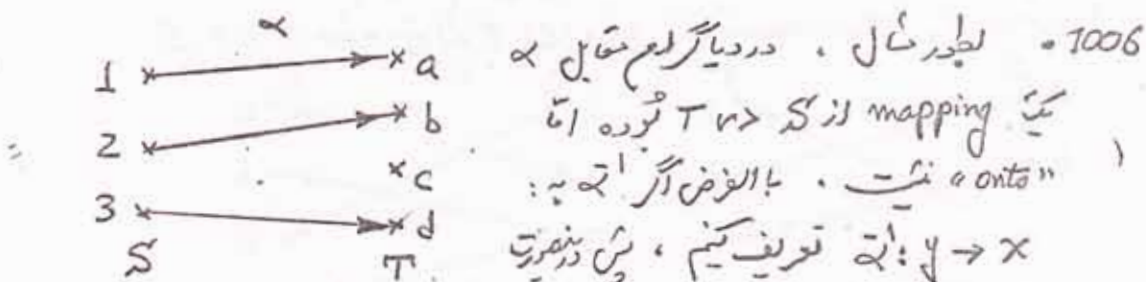 α
1006. بطور مثال ، در دیاگرام مقابل α
1 a
یک mapping از S در T بوده اما
2 b
c
"onto" نیست . باالفرض اگر α⁻¹ به :
3 d
α⁻¹: y → x تعریف کنیم ، پس درینصورت
S T